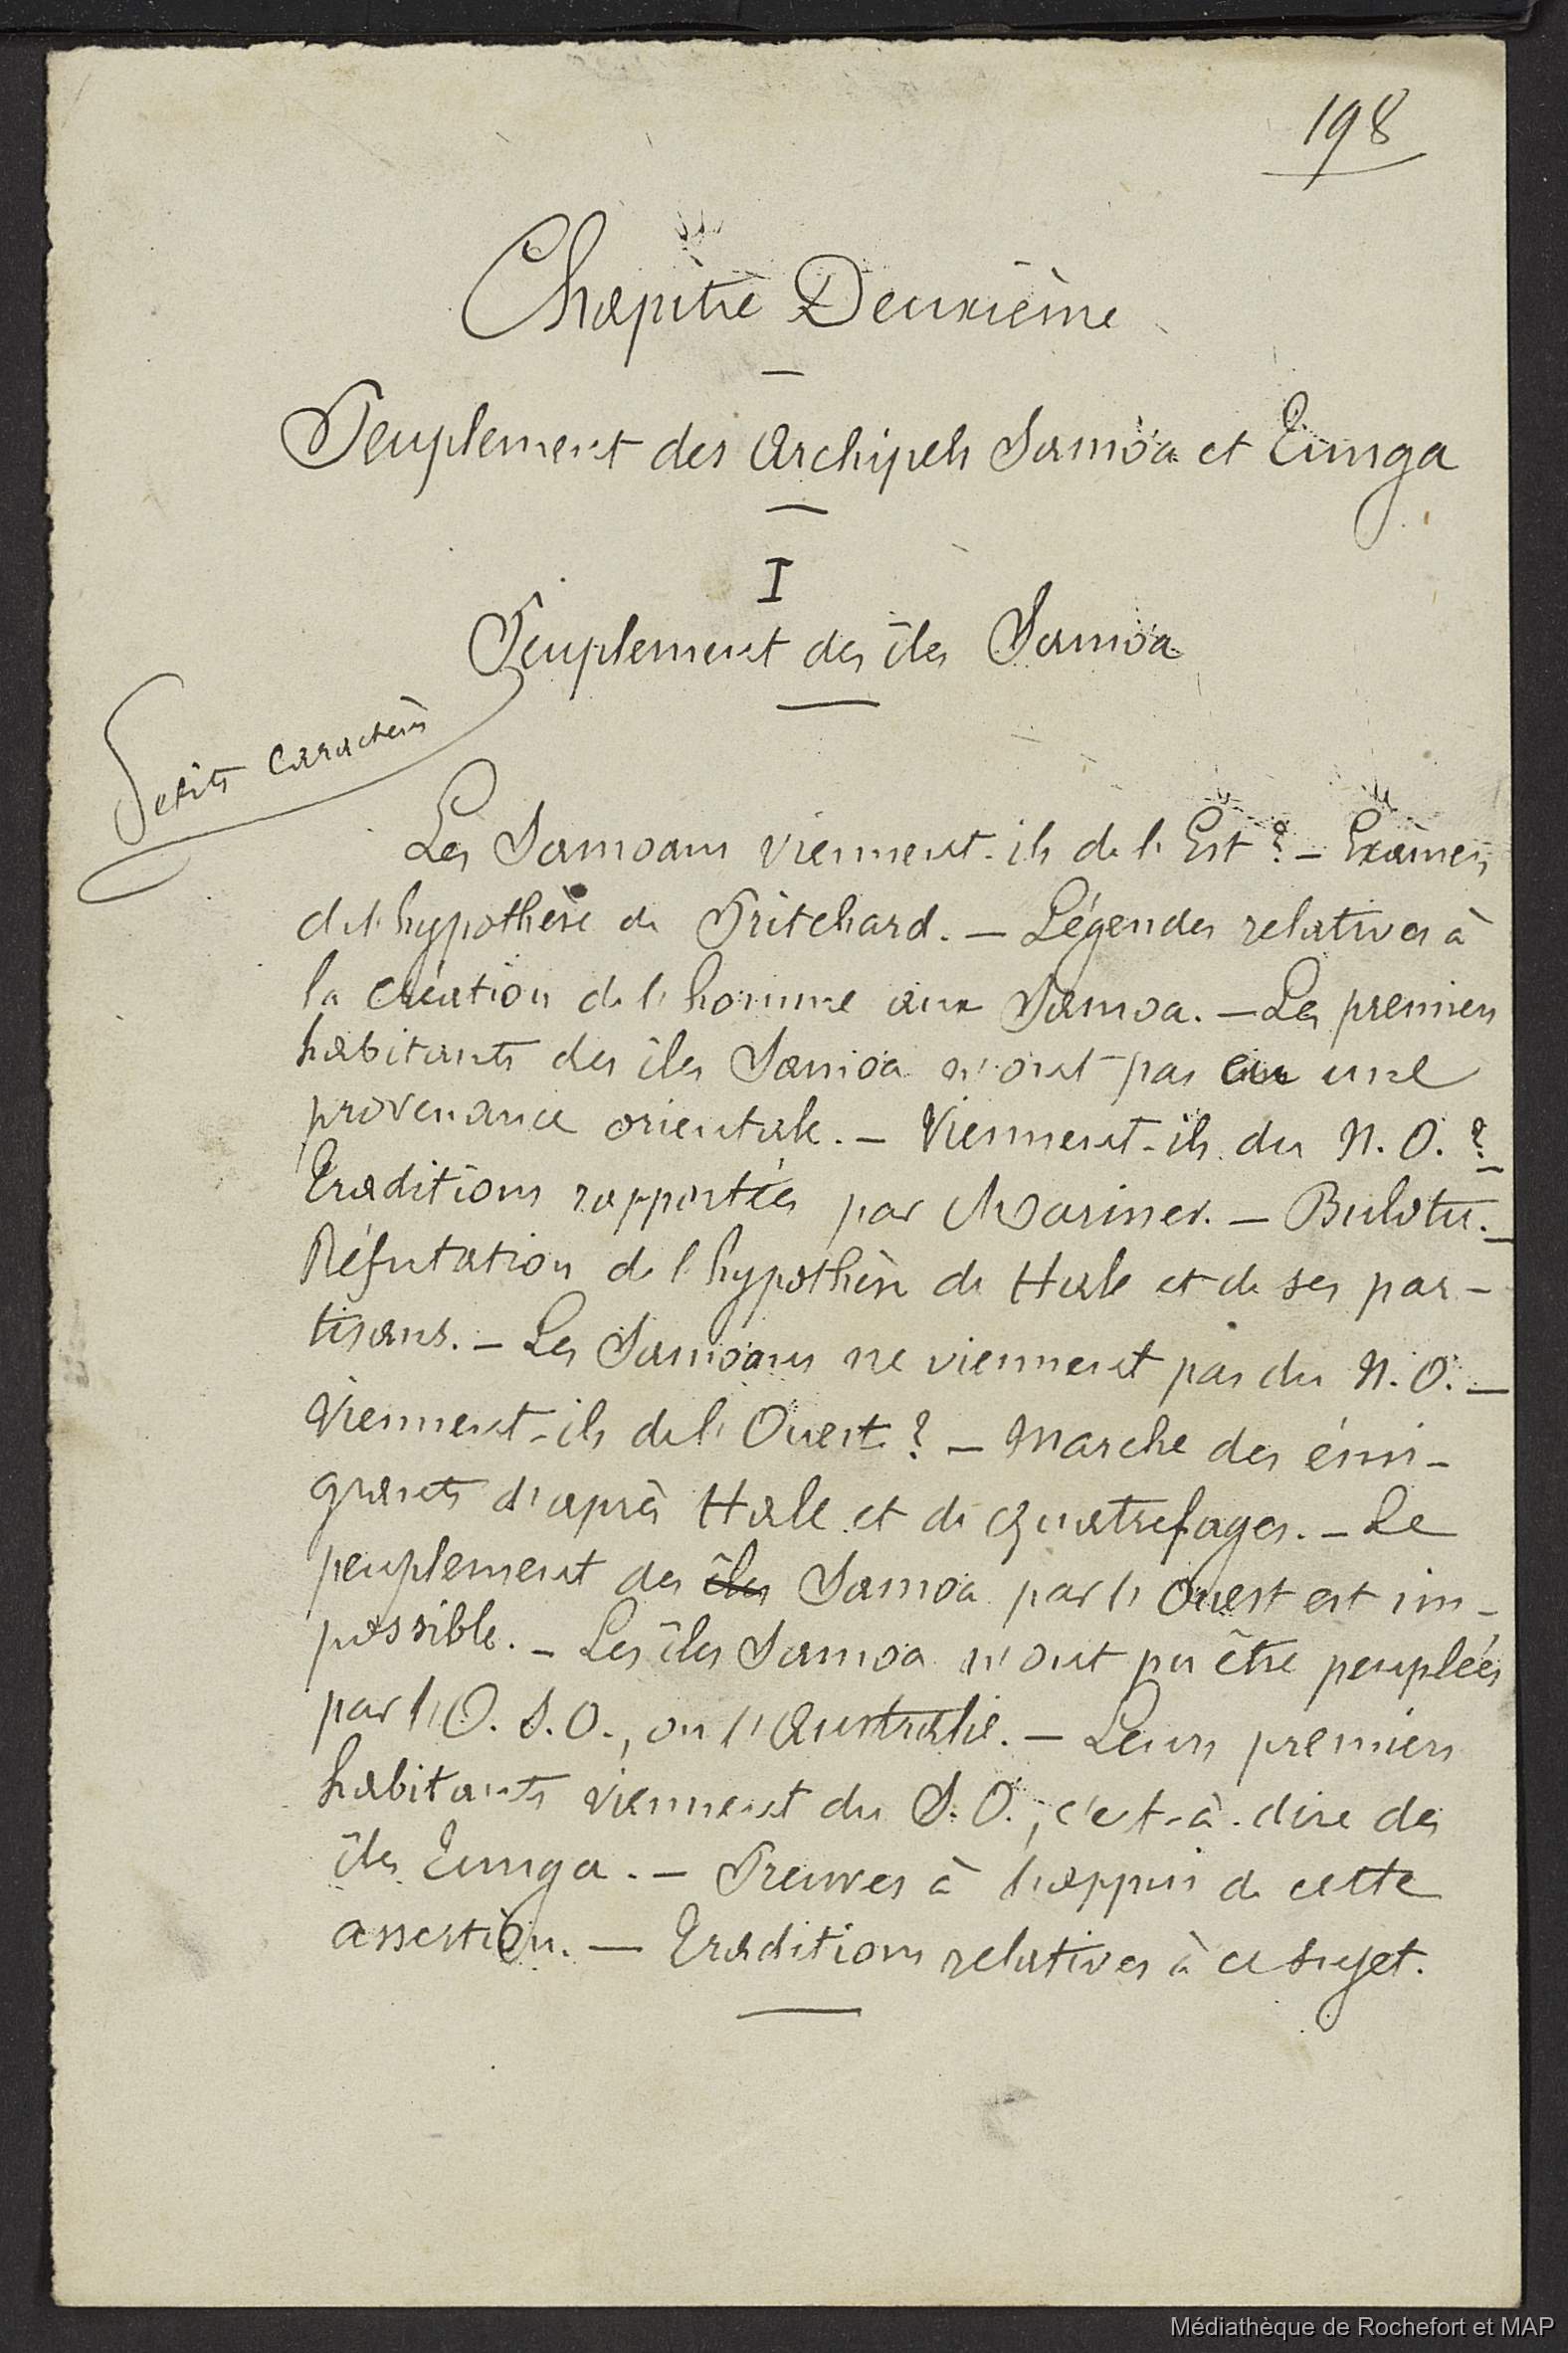 198
Chapitre Deuxième
Peuplement des Archipels Samoa et Tunga
I
Peuplement des îles Samoa
Petits caractères
Les Samoans viennent-ils de l'Est ? — Examen
de l'hypothèse de Pritchard. — Légendes relatives à
la création de l'homme aux Samoa. — Les premiers
habitants des îles Samoa n'ont pas eu une
provenance orientale. — Viennent-ils du N. O. ? —
Traditions rapportées par Mariner. — Bulotu. —
Réfutation de l'hypothèse de Hale et de ses par-
tisans. — Les Samoans ne viennent pas du N. O. —
Viennent-ils de l'Ouest ? — Marche des émi-
grants d'après Hale et de Quatrefages. — Le
peuplement des îles Samoa par l'Ouest est im-
possible. — Les îles Samoa n'ont pu être peuplées
par l'O. S. O., ou l'Australie. — Leurs premiers
habitants viennent du S. O., c'est-à-dire des
îles Tunga. — Preuves à l'appui de cette
assertion. — Traditions relatives à ce sujet.
Médiathèque de Rochefort et MAP